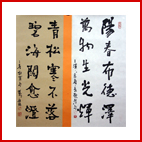 陽春布德澤
萬物生光輝
青松寒不落
碧海闊愈澄